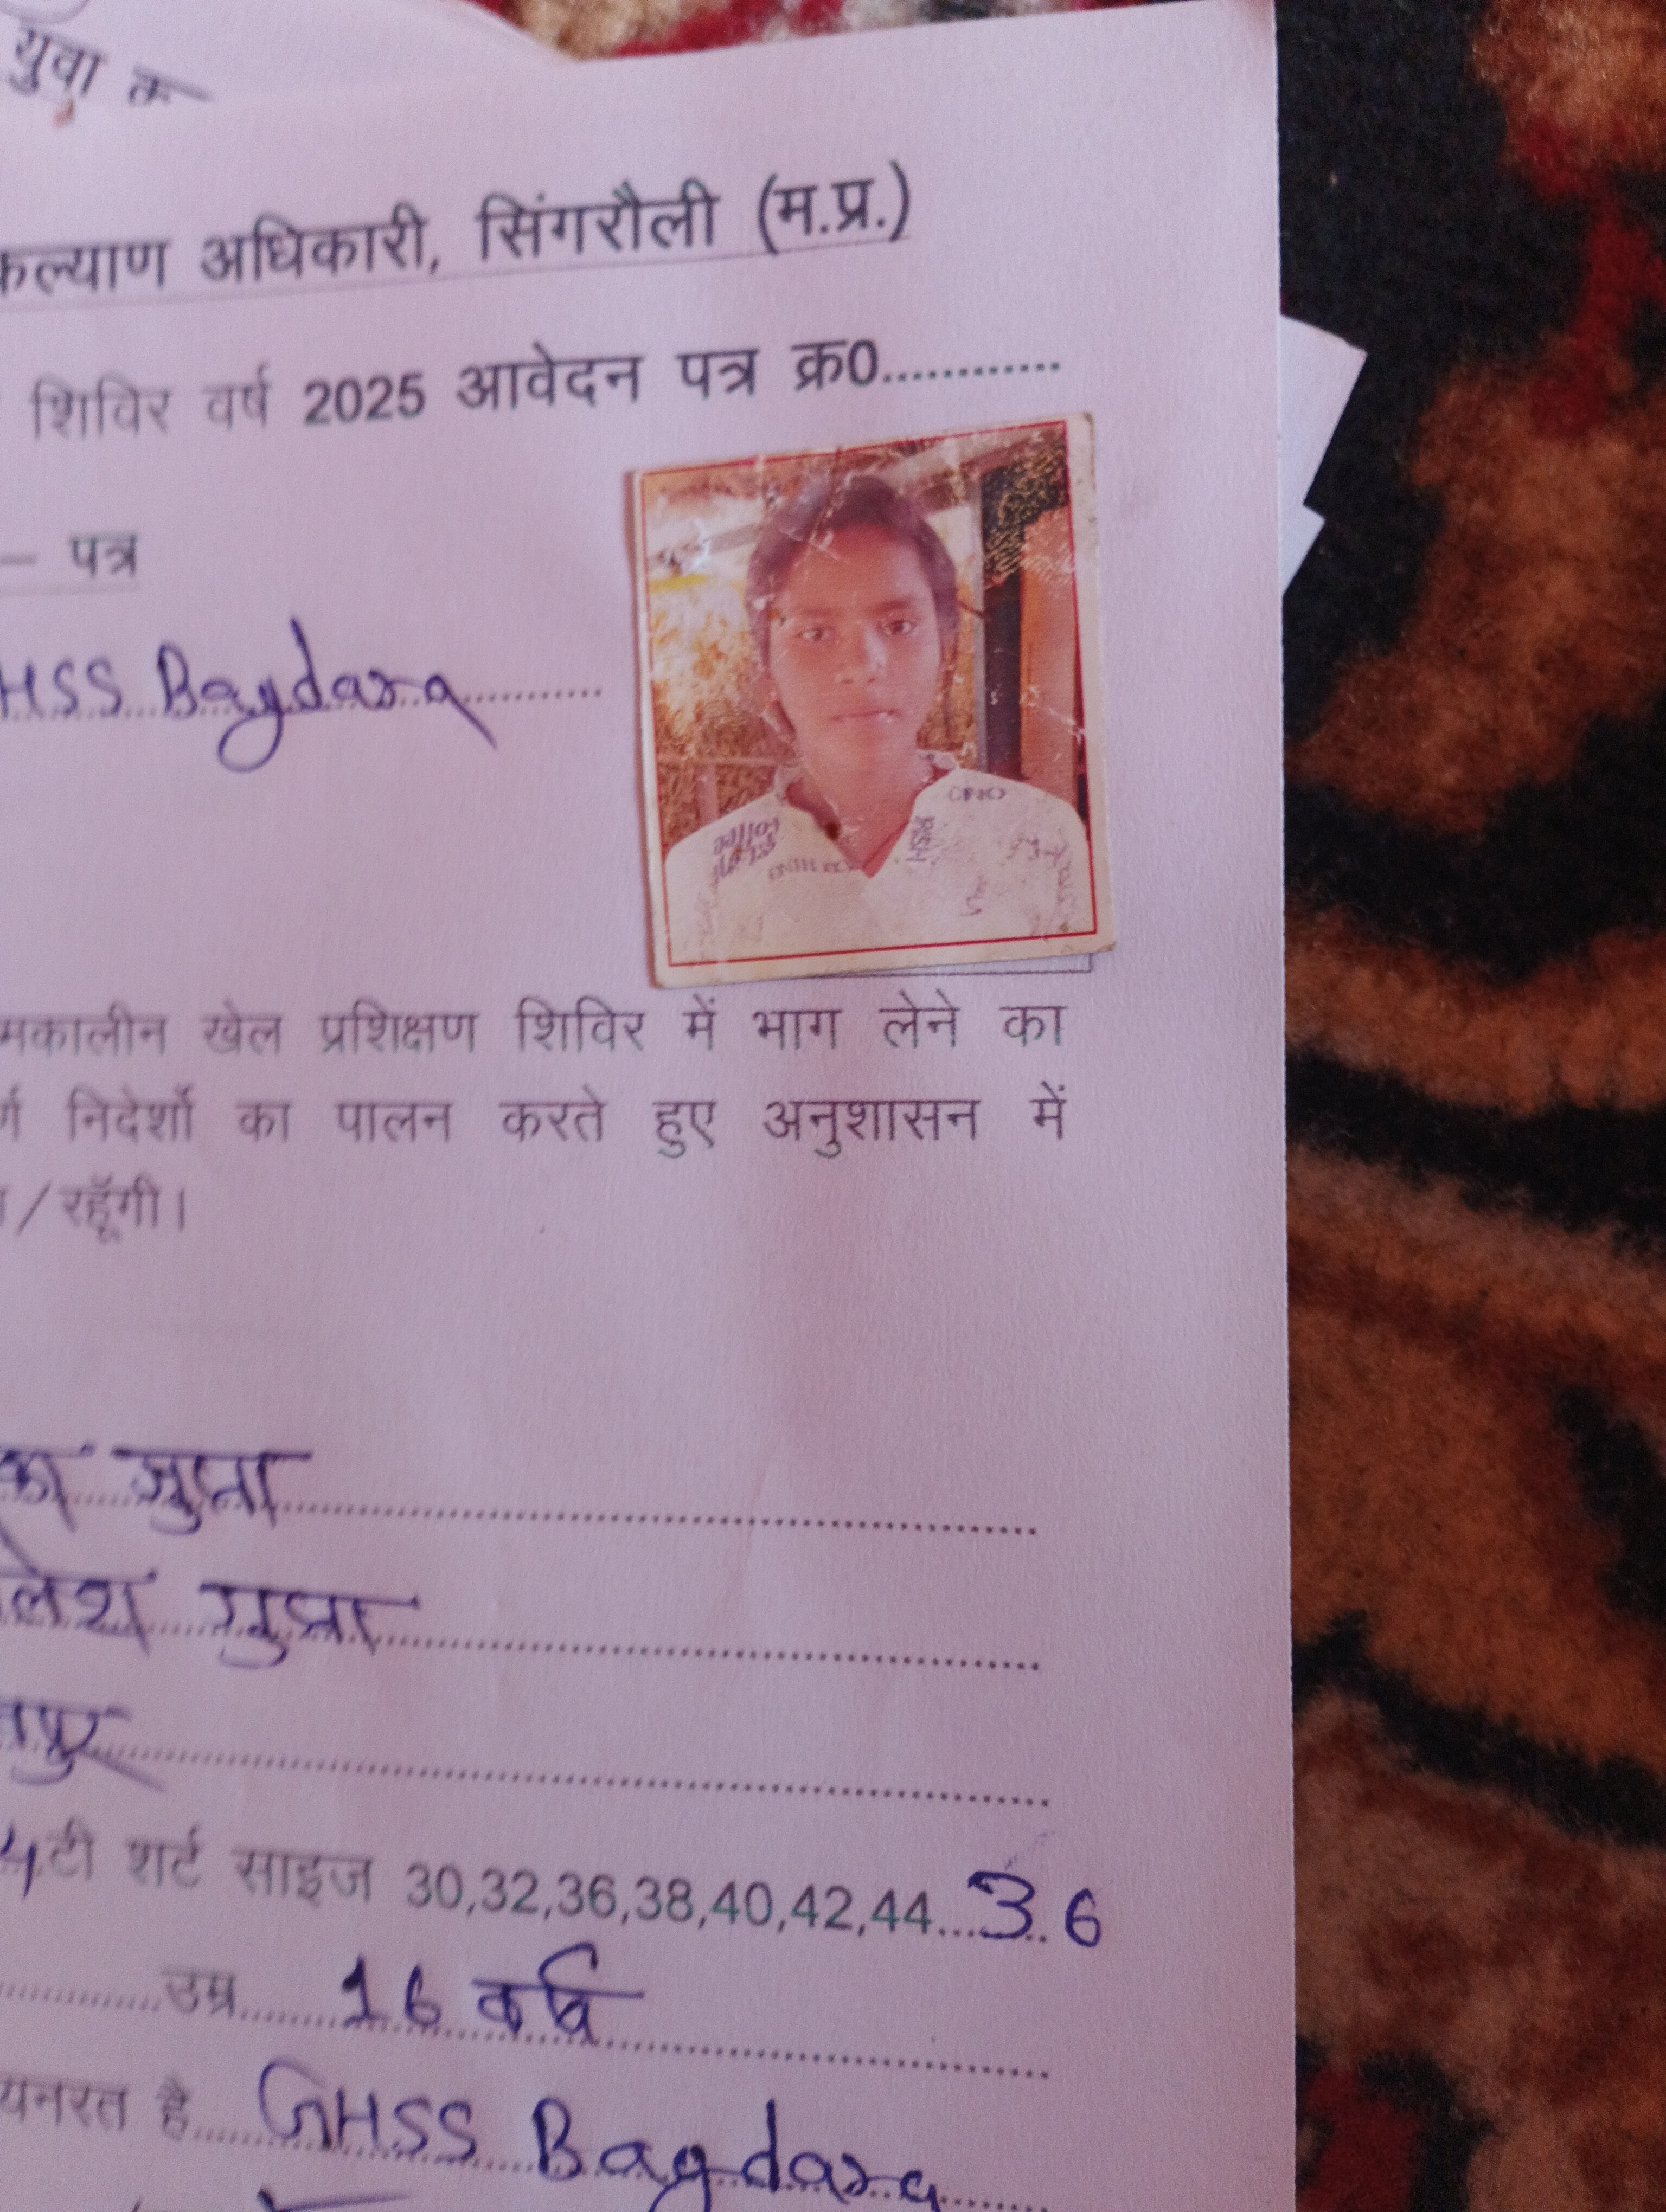 युवा क
कल्याण अधिकारी, सिंगरौली (म.प्र.)
शिविर वर्ष 2025 आवेदन पत्र क्र0............
– पत्र
HSS Bagdara
मकालीन खेल प्रशिक्षण शिविर में भाग लेने का
निदेर्शो का पालन करते हुए अनुशासन में
/रहूॅगी।
का गुप्ता
लेश गुप्ता
पुर
4टी शर्ट साइज 30,32,36,38,40,42,44...36
उम्र 16 वर्ष
यनरत है GHSS Bagdara